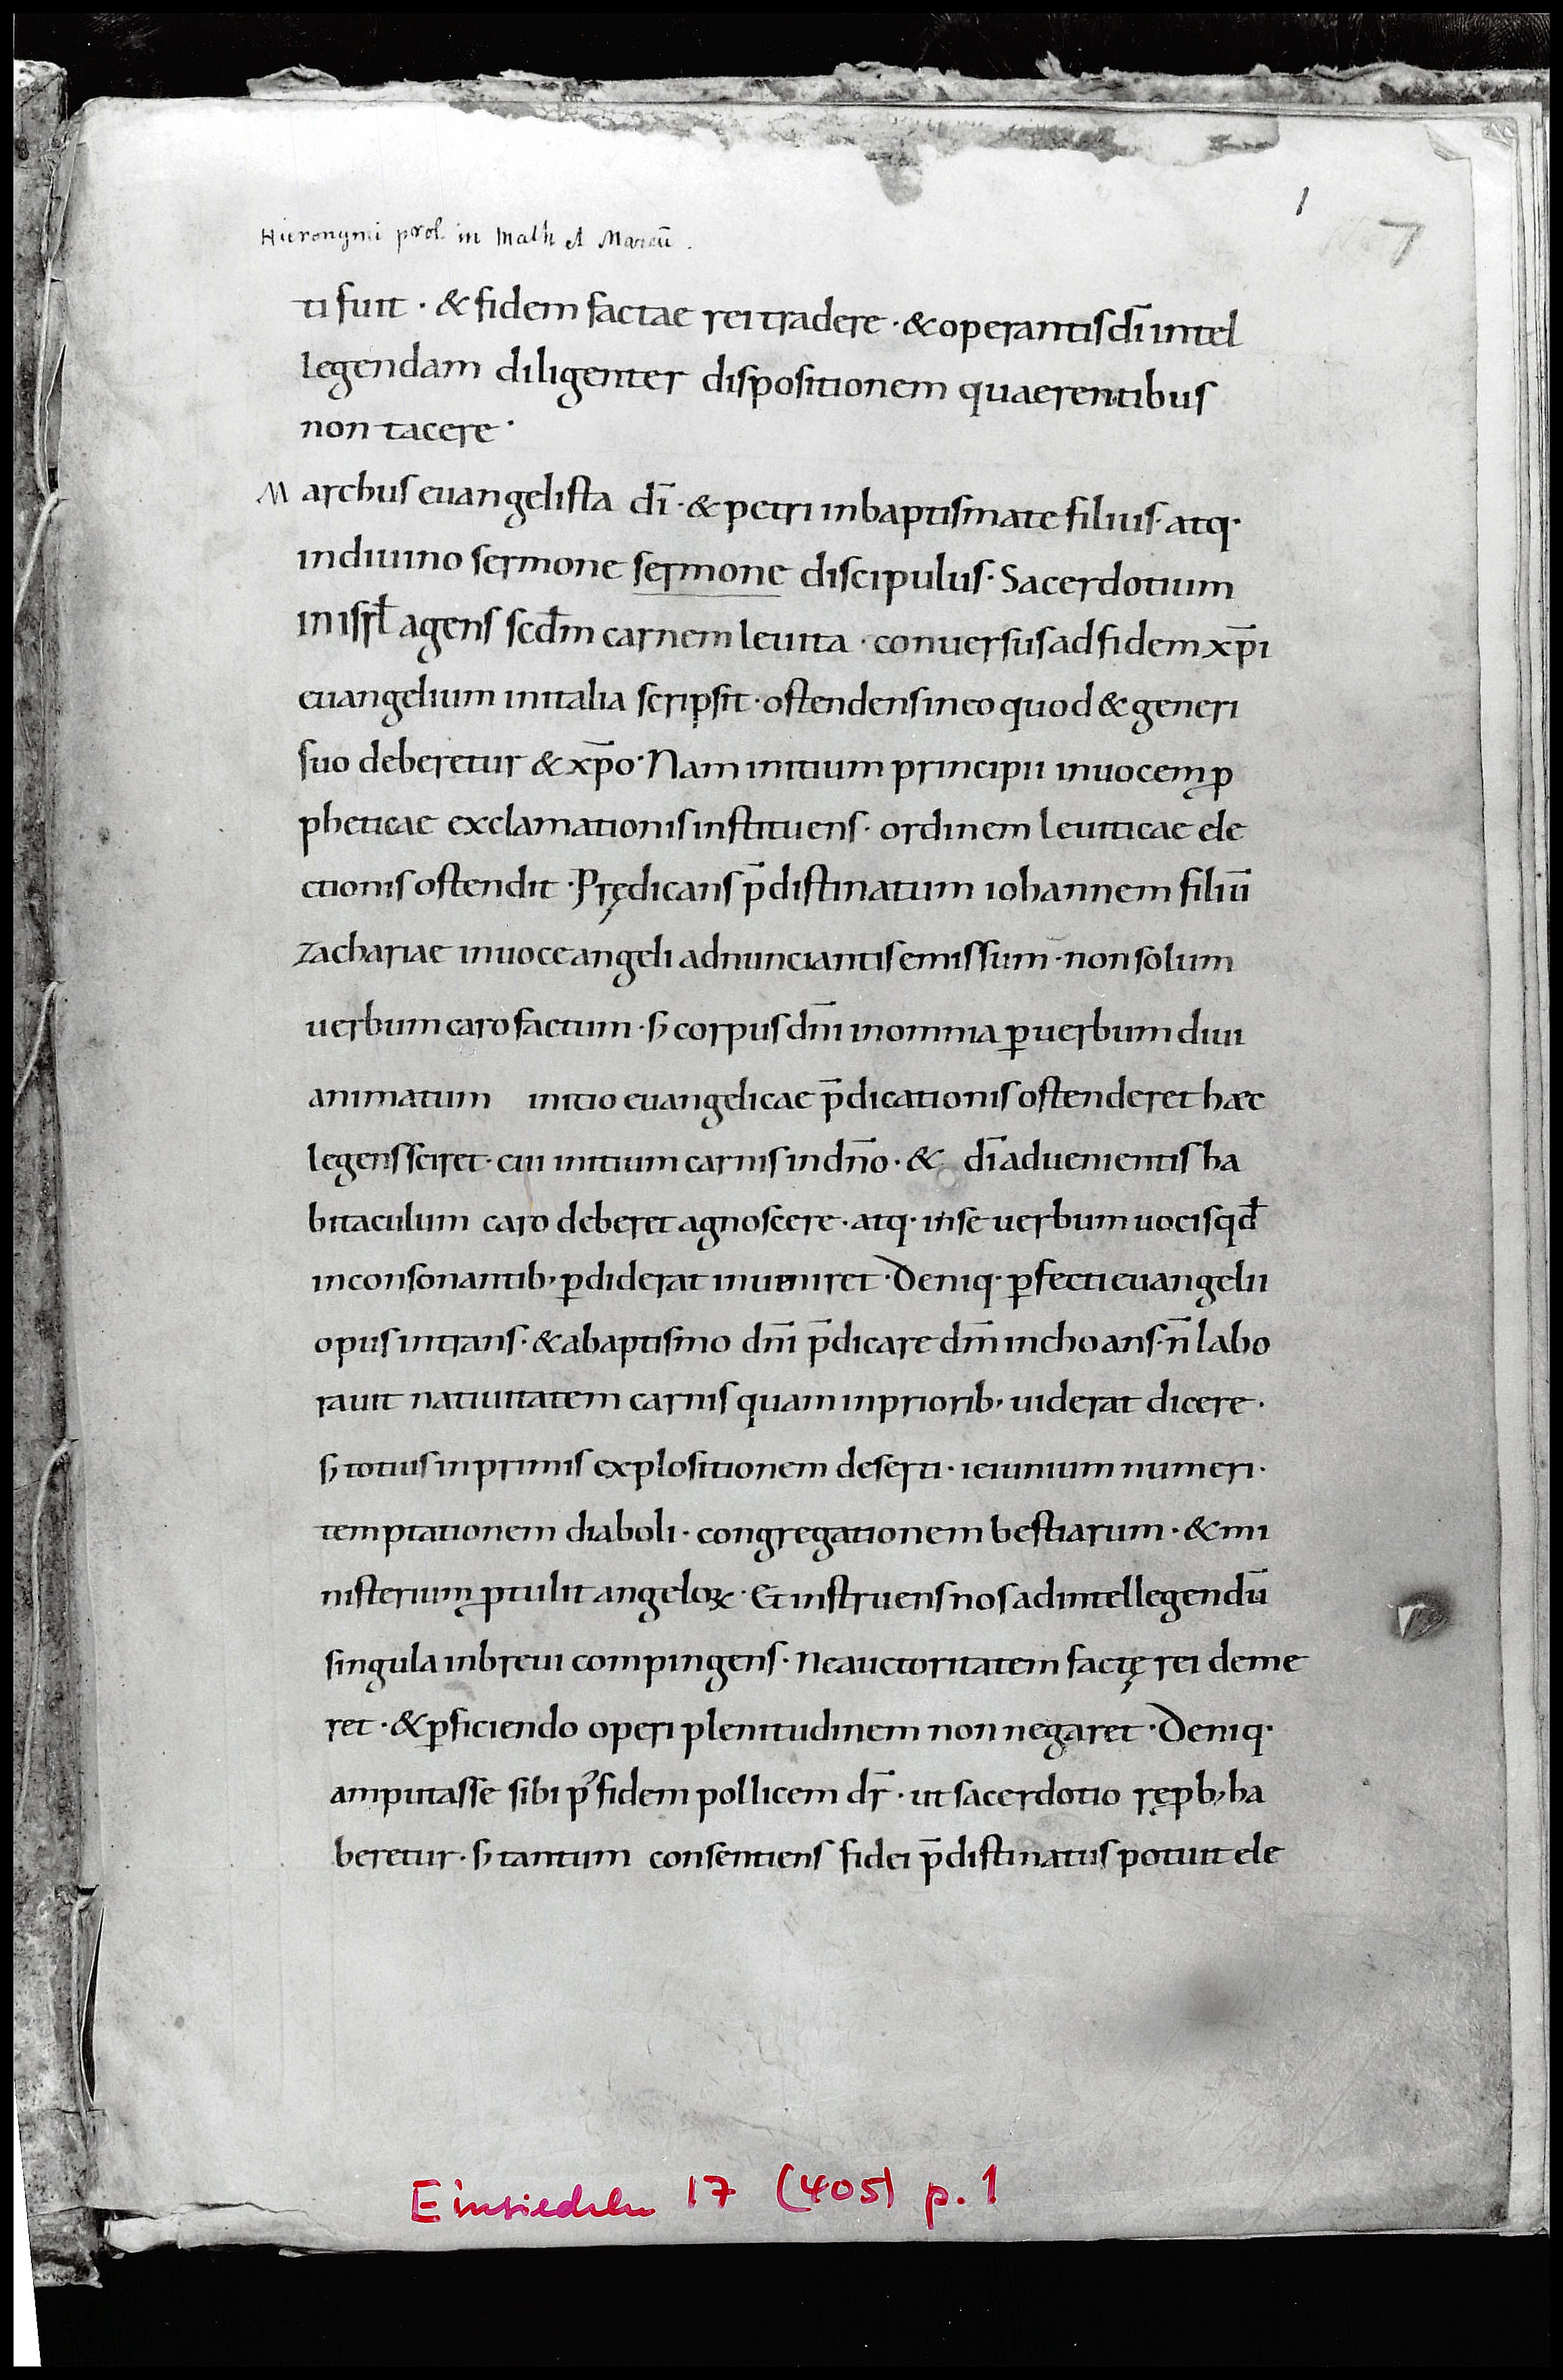 1
7
Hieronymi prol. in Math et Marcū.
ti fuit · & fidem factae rei tradere · & operantis dī intel
legendam diligenter dispositionem quaerentibus
non tacere ·
Marchus euangelista dī · & petri in baptismate filius · atq·
in diuino sermone sermone discipulus · Sacerdotium
in isrł agens scđm carnem leuita · conuersus ad fidem xp̄i
euangelium in italia scripsit · ostendens in eo quod & generi
suo deberetur & xp̄o · Nam initium principii in uocem ꝓ
pheticae exclamationis instituens · ordinem leuiticae ele
ctionis ostendit · Prędicans p̄distinatum iohannem filiū
zachariae in uoce angeli adnunciantis emissum · non solum
uerbum caro factum · s; corpus dn̄i in omnia ꝑ uerbum diui
animatum initio euangelicae p̄dicationis ostenderet haec
legens sciret · cui initium carnis in dn̄o · & dī aduenientis ha
bitaculum caro deberet agnoscere · atq· in se uerbum uocis qđ
in consonantib; ꝑdiderat inueniret · Deniq· ꝑfecti euangelii
opus intrans · & a baptismo dn̄i p̄dicare dm̄ inchoans · n̄ labo
rauit natiuitatem carnis quam in priorib; uiderat dicere ·
s; totius in primis explositionem deserti · ieiunium numeri ·
temptationem diaboli · congregationem bestiarum · & mi
nisterium ꝓtulit angeloꝝ · Et instruens nos ad intellegendū
singula in breui compingens · Ne auctoritatem factę rei deme
ret · & ꝑficiendo operi plenitudinem non negaret · Deniq·
amputasse sibi p᷒ fidem pollicem dr̄ · ut sacerdotio ręprob; ha
beretur · s; tantum consentiens fidei p̄distinatus potuit ele
Einsiedeln 17 (405) p. 1